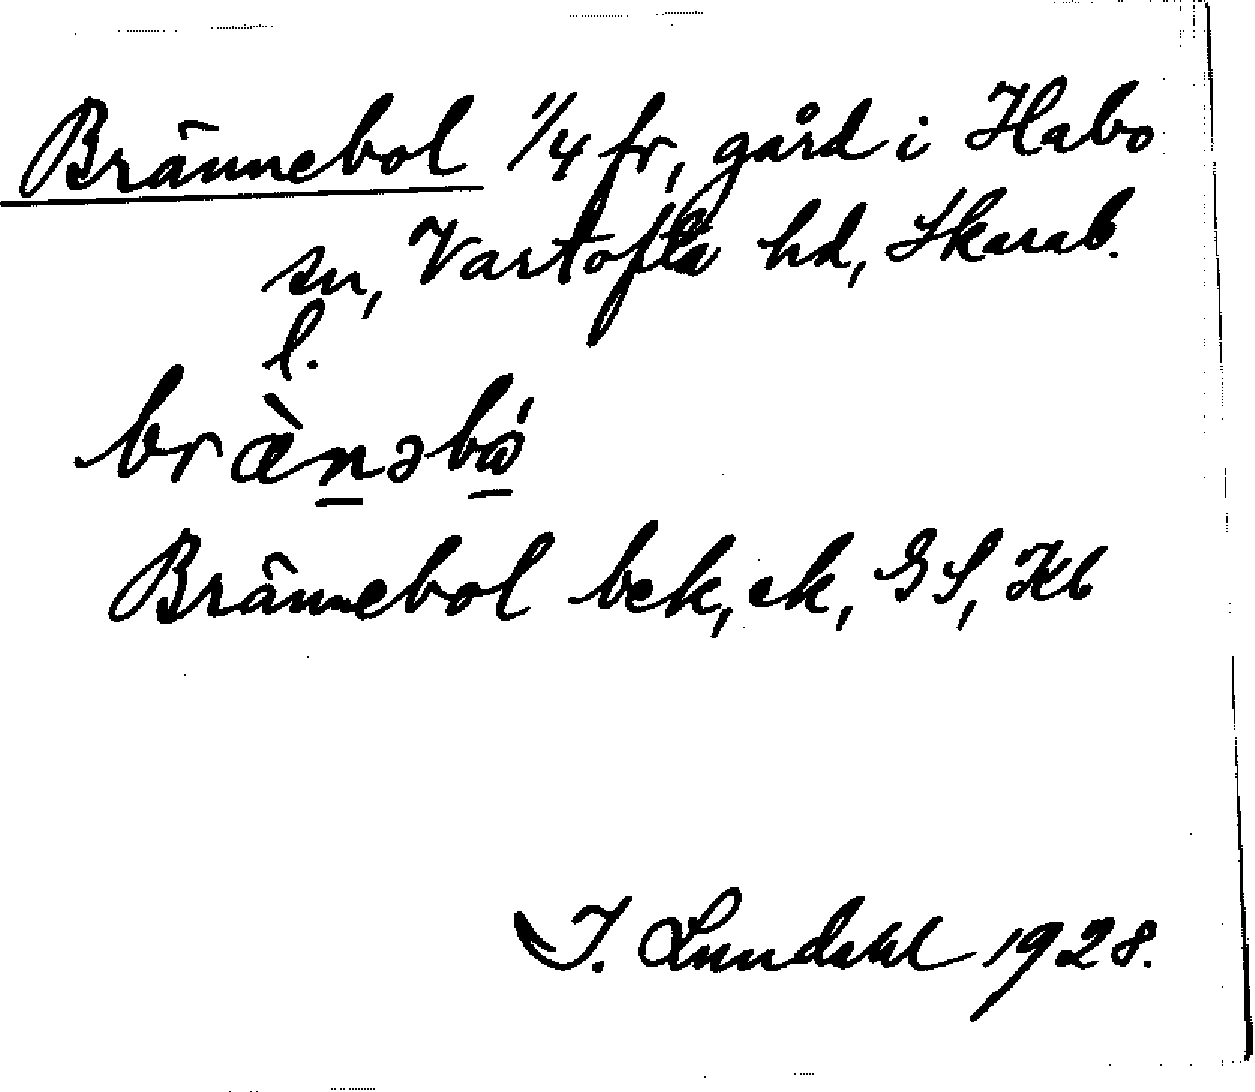 Brännebol 1/4 fr, gård i Habo
sn, Vartofta hd, Skarab.
l.
bræ̀nəbó̱
Brännebol bek, ek, GS, Kb
I. Lundahl 1928.